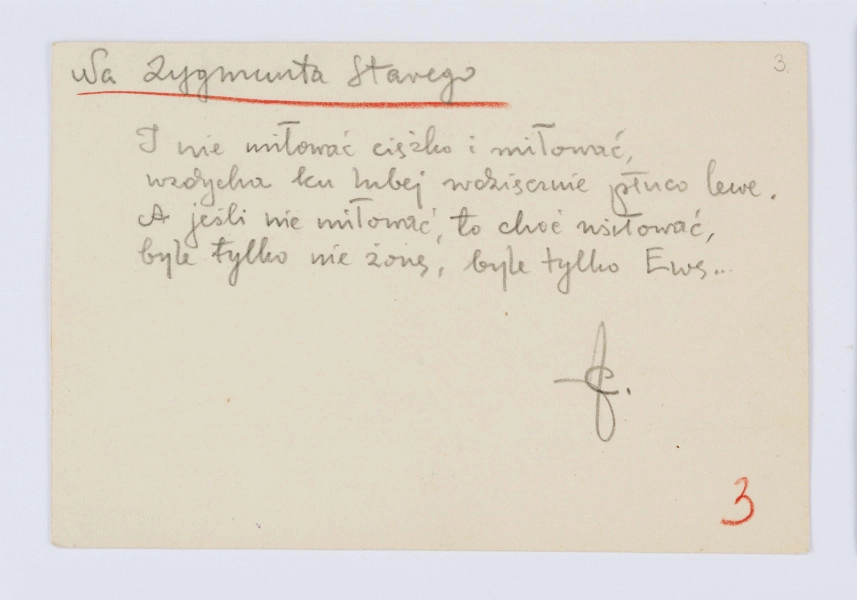 Na Zygmunta Starego
3
I nie miłować ciężko i miłować,
wzdycha ku lubej wdzięcznie płuco lewe.
A jeśli nie miłować, to choć usiłować,
byle tylko nie żonę, byle tylko Ewę...
3